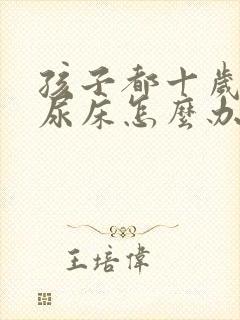 孩子都十歲
尿床怎麼办
王培偉